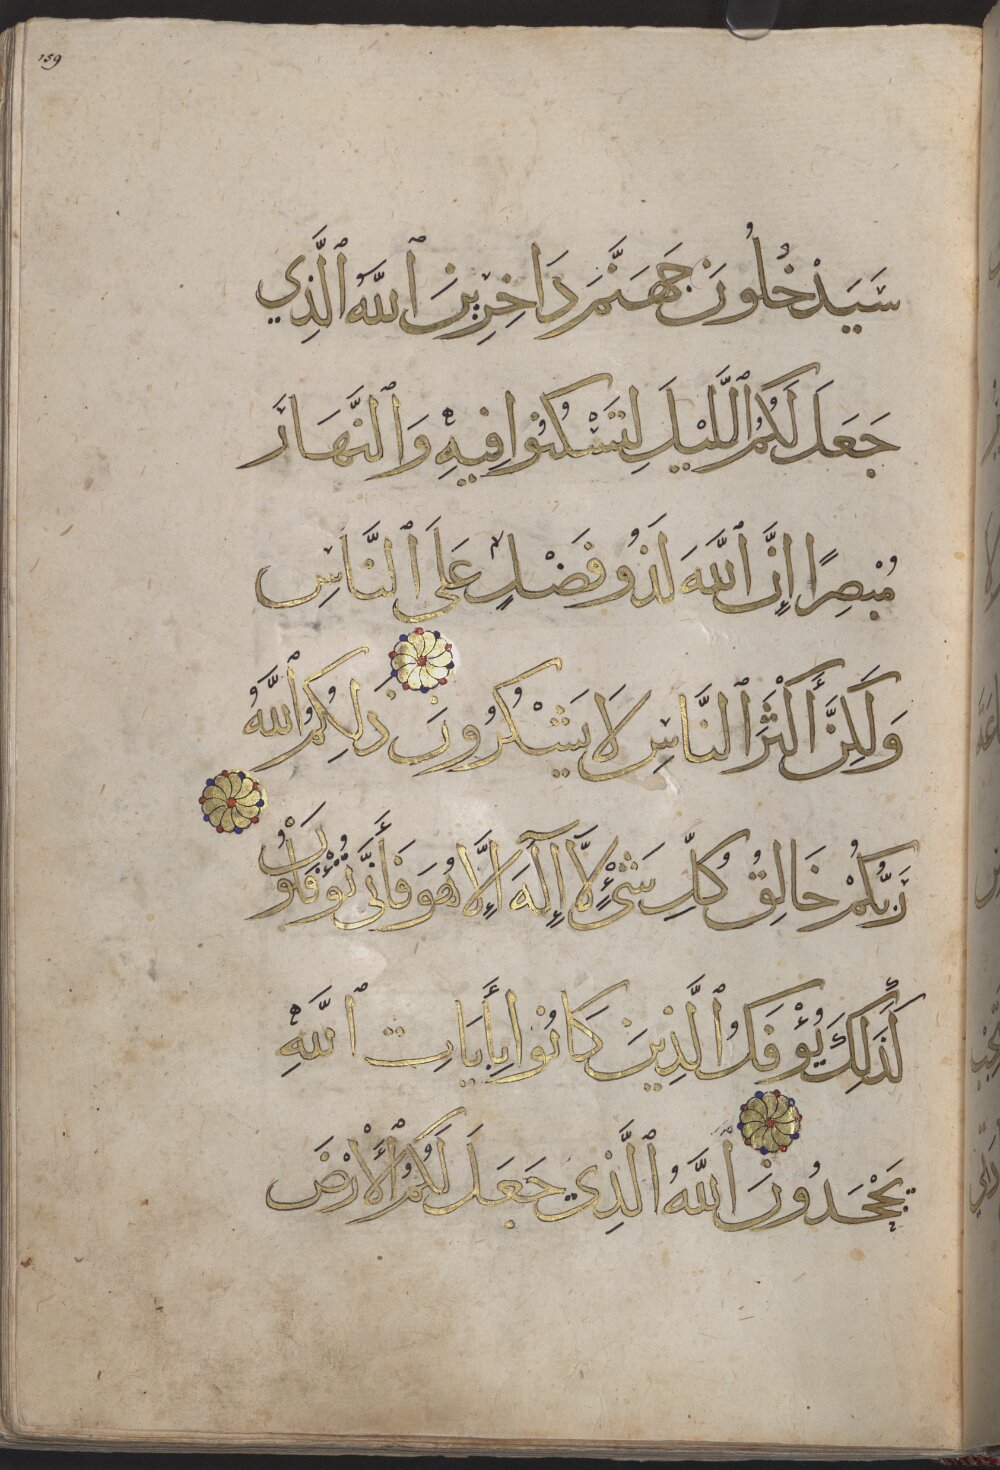 159
سَيَدْخُلُونَ جَهَنَّمَ دَاخِرِينَ ٱللَّهُ ٱلَّذِي
جَعَلَ لَكُمُ ٱللَّيْلَ لِتَسْكُنُوا فِيهِ وَٱلنَّهَارَ
مُبْصِرًا إِنَّ ٱللَّهَ لَذُو فَضْلٍ عَلَى ٱلنَّاسِ
وَلَكِنَّ أَكْثَرَ ٱلنَّاسِ لَا يَشْكُرُونَ ذَلِكُمُ ٱللَّهُ
رَبُّكُمْ خَالِقُ كُلِّ شَيْءٍ لَّآ إِلَهَ إِلَّا هُوَ فَأَنَّى تُؤْفَكُونَ
كَذَلِكَ يُؤْفَكُ ٱلَّذِينَ كَانُوا بِأَيَاتِ ٱللَّهِ
يَجْحَدُونَ ٱللَّهُ ٱلَّذِي جَعَلَ لَكُمُ ٱلْأَرْضَ